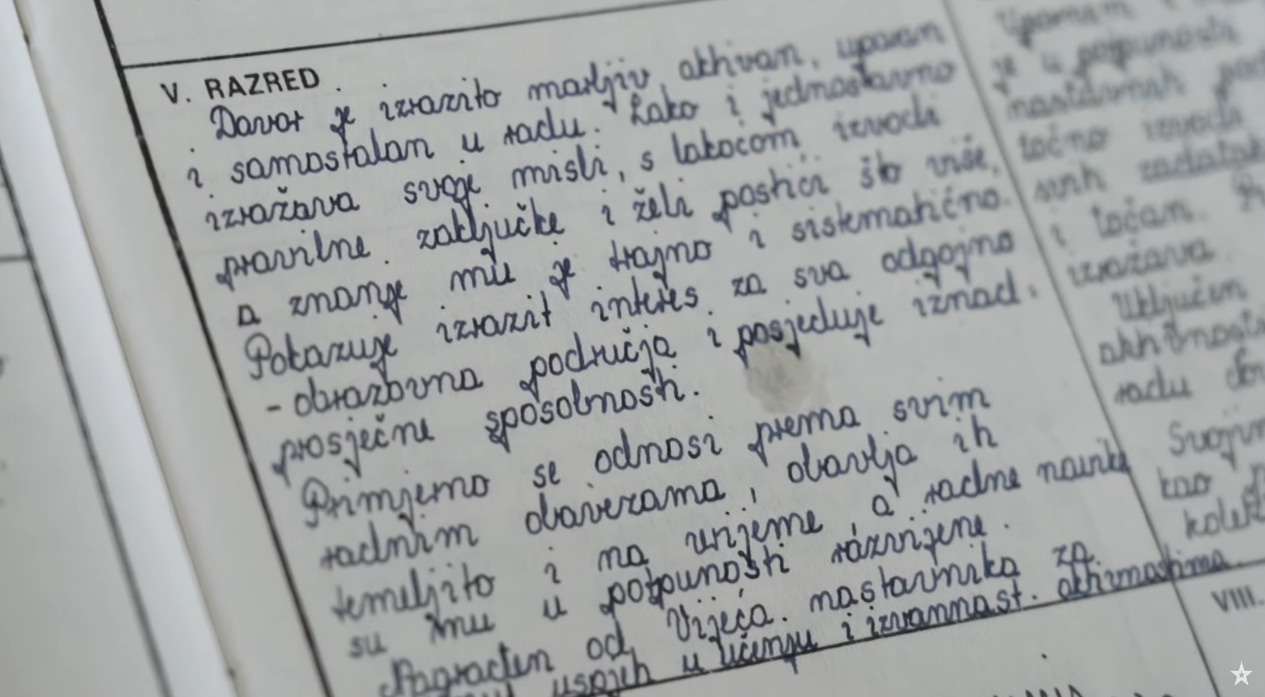 V. RAZRED.
Davor je izrazito marljiv, aktivan, uporan
i samostalan u radu. Lako i jednostavno
izražava svoje misli, s lakoćom izvodi
pravilne zaključke i želi postići što više,
a znanje mu je trajno i sistematično.
Pokazuje izrazit interes za sva odgojno
-obrazovna područja i posjeduje iznad-
prosječne sposobnosti.
Primjerno se odnosi prema svim
radnim obavezama, obavlja ih
temeljito i na vrijeme, a radne navike
su mu u potpunosti razvijene.
Nagrađen od Vijeća nastavnika za
uspjeh u učenju i izvannast. aktivnostima.
je u potpunosti
nastavnih
točno izvodi
svih zadatak
i točan.
izražava
Uključen
aktivnosti
radu
Svojim
kao
kolek
VIII.